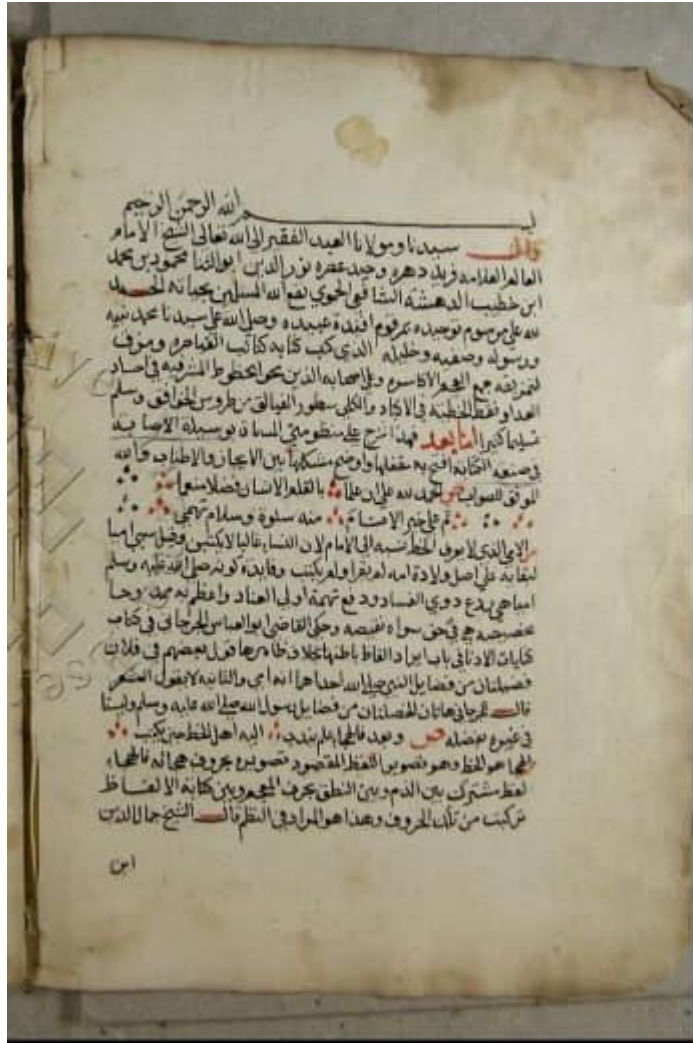 بسم الله الرحمن الرحيم
قال سيدنا ومولانا العبد الفقير الى الله تعالى الشيخ الامام
العالم العلامة فريد دهره وحيد عصره نور الدين ابو الثنا محمود بن محمد
ابن خطيب الدهشة الشافعي الحموي نفع الله المسلمين بحياته الحمد
لله على مرسوم توحيده بمرقوم افئدة عبيده وصلى الله على سيدنا محمد نبيه
ورسوله وصفيه وخليله الذي كبت كتابه كتائب القياصرة
جمع الاكاسرة وعلى اصحابه الذين نحوا بخطوط المشرفية في اجساد
العدا ونقط الخطية في الاكباد والكلى سطور الفيالق من طروس الخوافق وسلم
تسليما كثيرا اما بعد فهذا شرح على منظومتي المسماة بوسيلة الاصابة
في صنعة الكتابة افتح به مقفلها واوضح مشكلها بين الايجاز والاطناب والله
الموفق للصواب ص الحمد لله على ان علما بالقلم الانسان فضلا منعما
ثم على خير الانام منه صلوة وسلام تهمى
الامي الذي لا يعرف الخط نسبه الى الام لان النساء غالبا لا يكتبن وقيل سمي اميا
لبقائه على اصل ولادة امه لم يقرا ولم يكتب وفايدة كونه صلى الله عليه وسلم
اميا هي ردع ذوي الفساد ودفع تهمة اولي العناد واعظم به
خصيصة هي في حق سواه نقيصه وحكى القاضي ابو العباس الجرجاني في كتاب
كنايات الادبا في باب ايراد الفاظ باطنها بخلاف ظاهرها قول بعضهم في فلان
فضيلتان من فضايل النبي صلى الله احداهما انه امي والثانية لا يقول الشعر
قال الجرجاني هاتان الخصلتان من فضايل رسول الله صلى الله عليه وسلم وليستا
في غيره بفضله ص وبعد فالهجاء علم يندب اليه اهل الخط حين يكتب
الهجا هو الخط وهو تصوير اللفظ المقصود تصويره بحروف هجائه فالهجاء
لفظ مشترك بين الذم وبين النطق بحرف المعجم وبين كتابة الالفاظ
تركبت من تلك الحروف وهذا هو المراد في النظم قال الشيخ جمال الدين
ابن